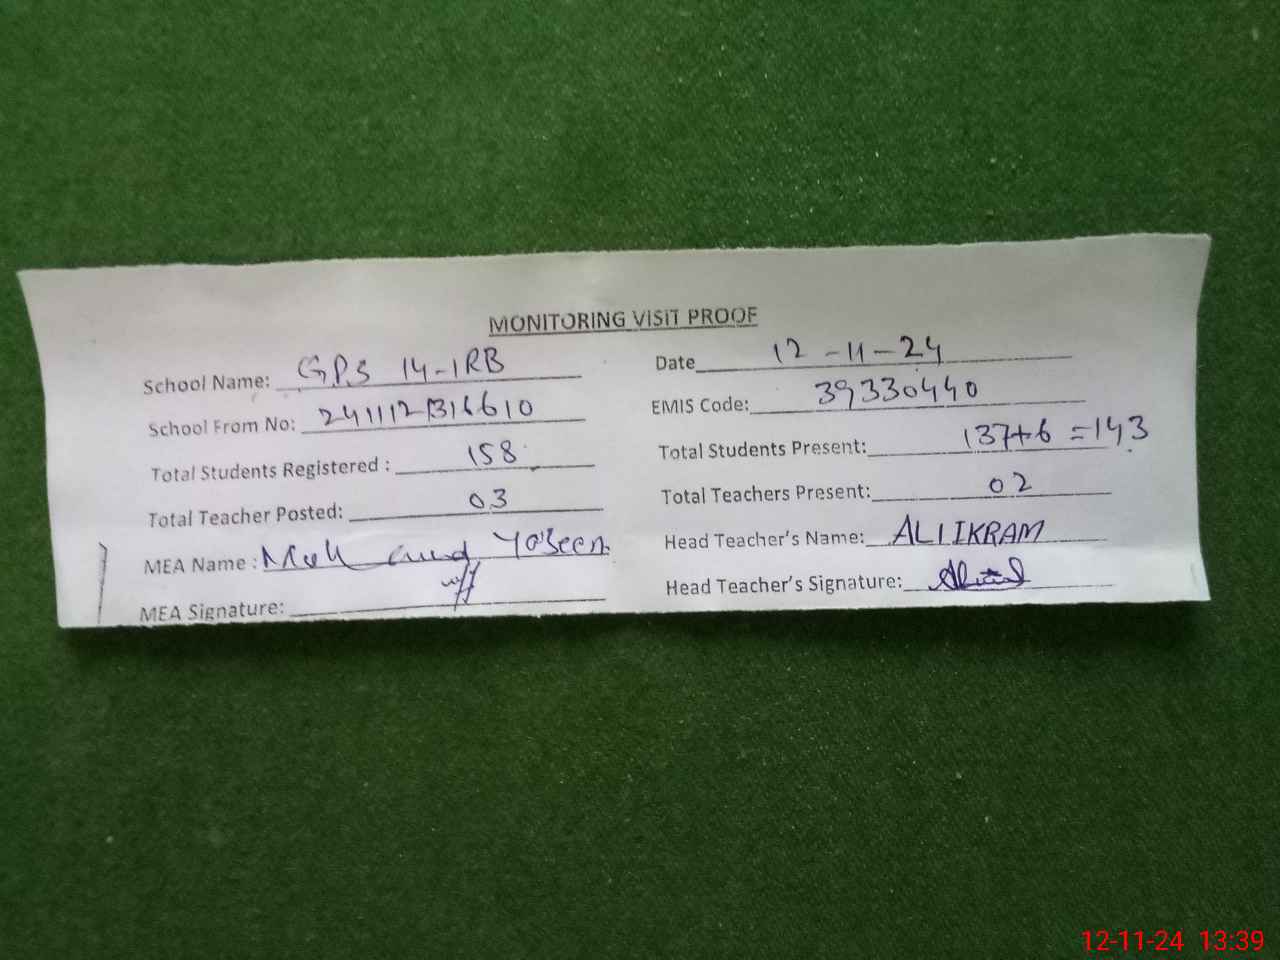 MONITORING VISIT PROOF
School Name: GPS 14-1RB
Date 12-11-24
School From No: 2411121316610
EMIS Code: 39330440
Total Students Registered : 158
Total Students Present: 137+6 =143
Total Teacher Posted: 03
Total Teachers Present: 02
MEA Name : Yaseen
Head Teacher's Name: ALI IKRAM
MEA Signature:
Head Teacher's Signature:
12-11-24 13:39